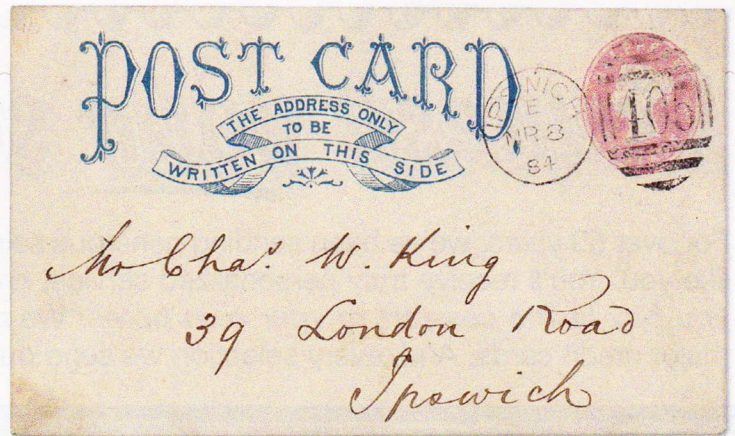 POST CARD
THE ADDRESS ONLY
TO BE
WRITTEN ON THIS SIDE
IPSWICH
E
MR 8
84
405
Mr Chas. W. King
39 London Road
Ipswich